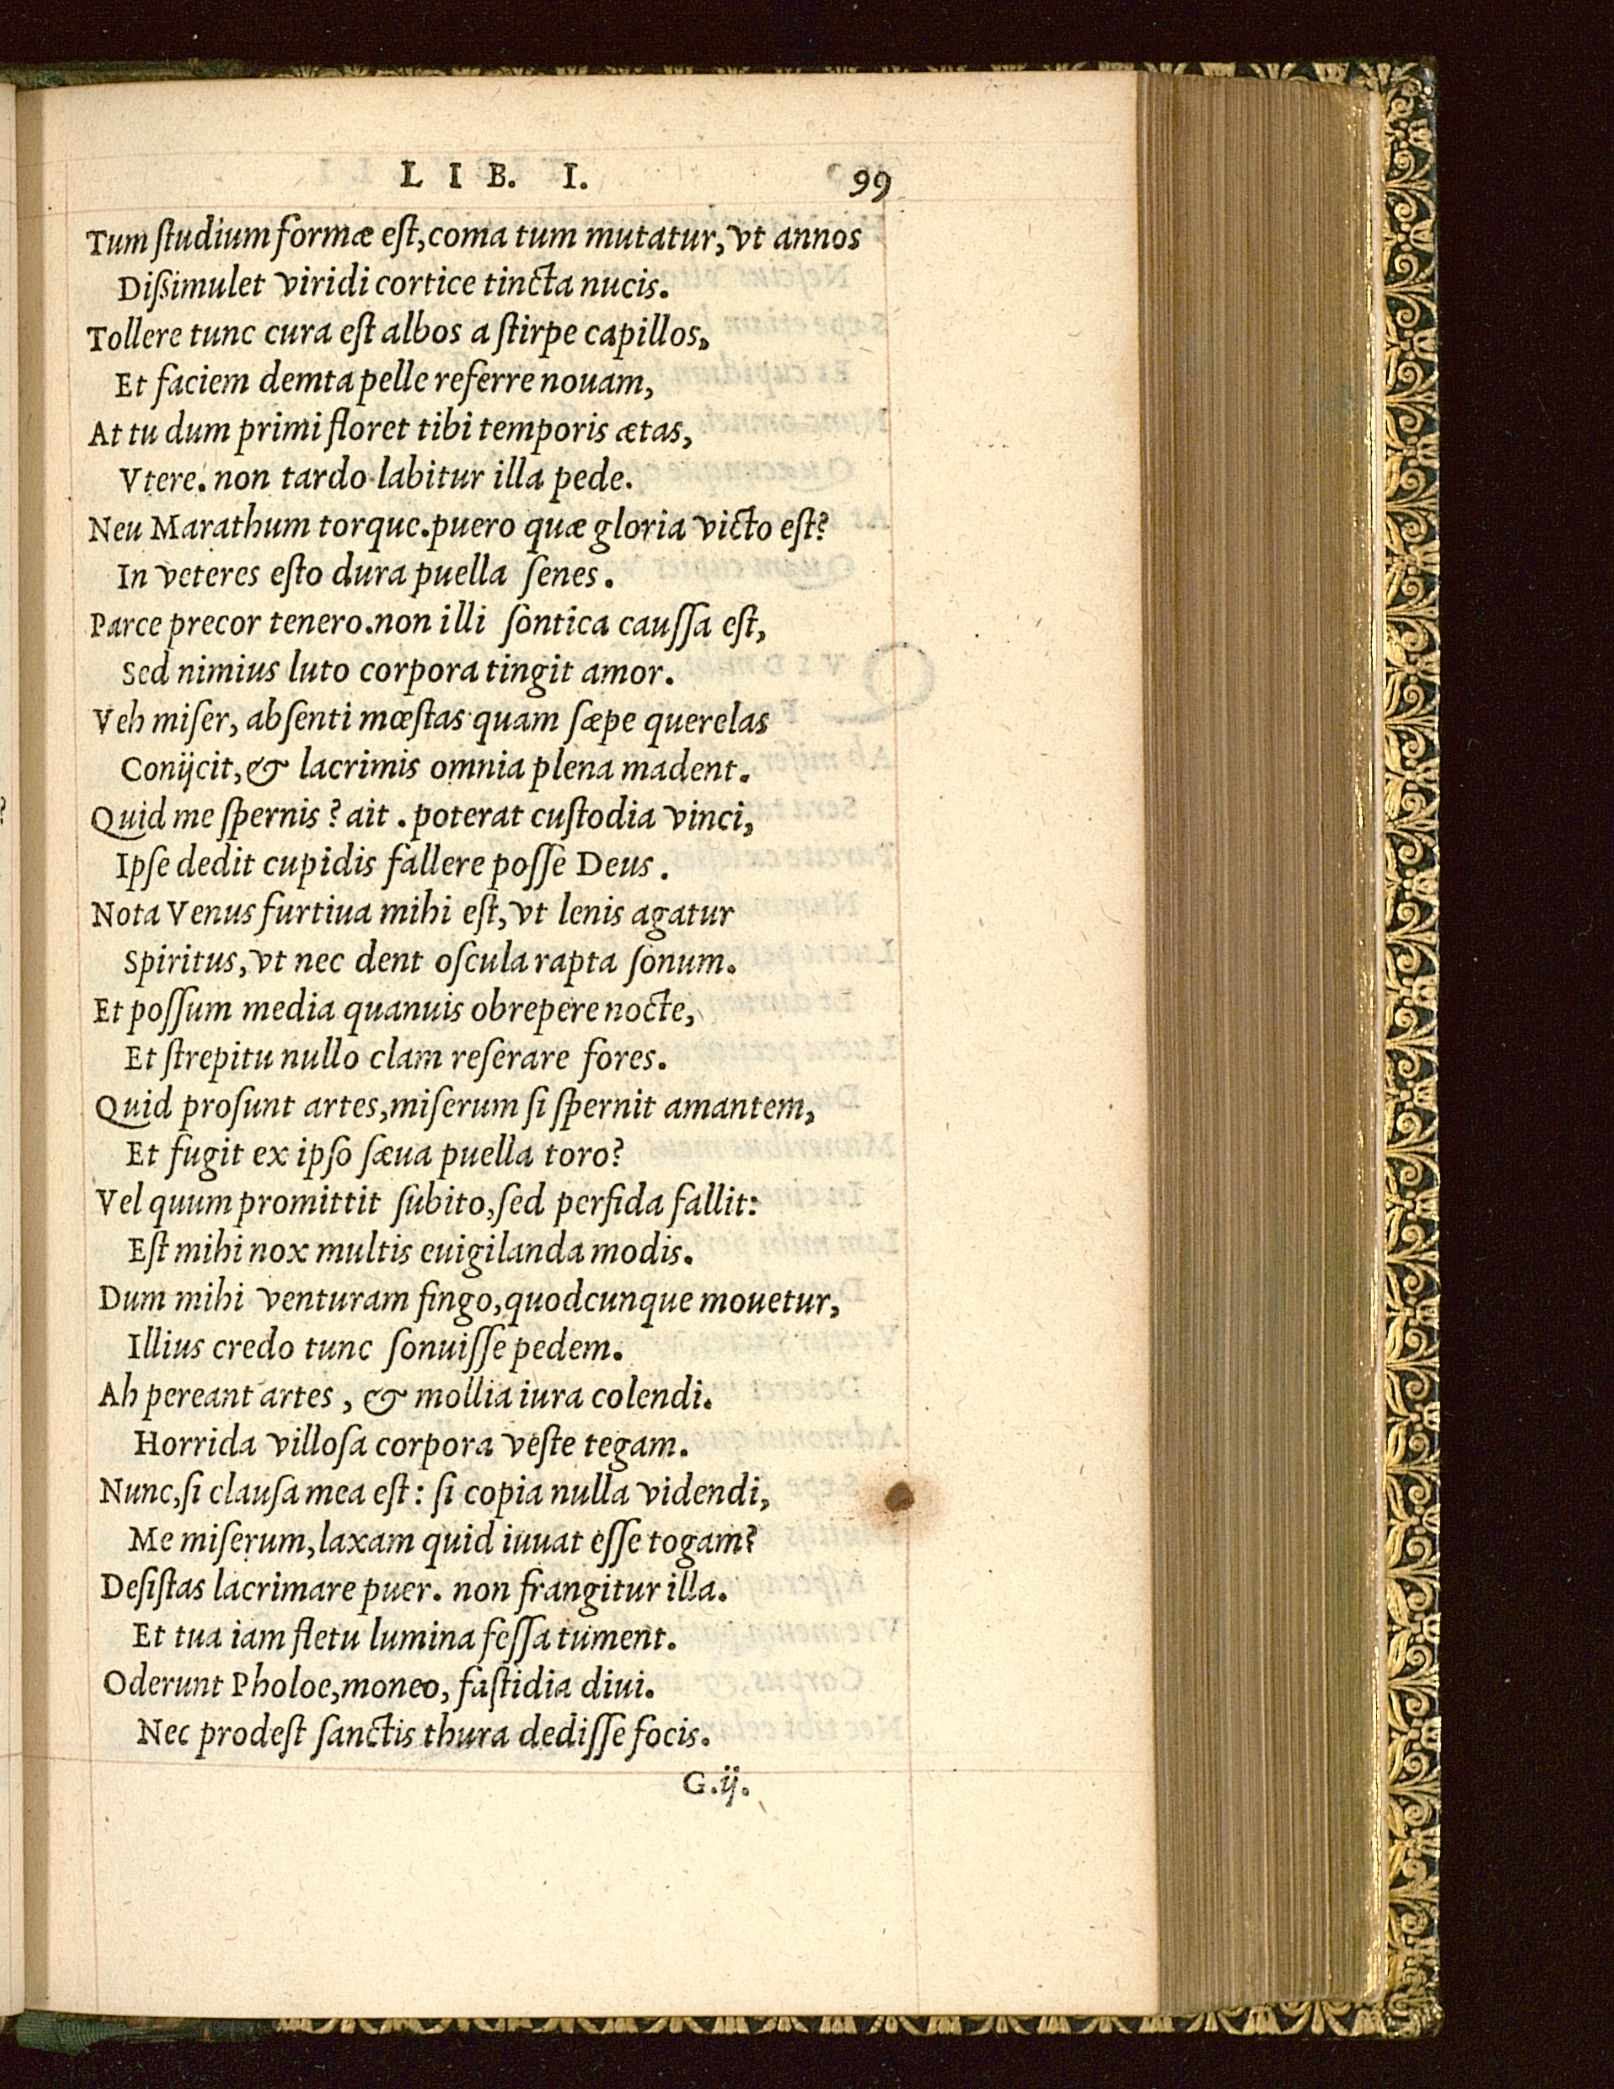 LIB. I. 99
Tum ſtudium formæ eſt, coma tum mutatur, vt annos
Diſsimulet viridi cortice tincta nucis.
Tollere tunc cura eſt albos a ſtirpe capillos,
Et faciem demta pelle referre nouam,
At tu dum primi floret tibi temporis ætas,
Vtere. non tardo labitur illa pede.
Neu Marathum torque. puero quæ gloria victo eſt?
In veteres eſto dura puella ſenes.
Parce precor tenero. non illi ſontica cauſſa eſt,
Sed nimius luto corpora tingit amor.
Veh miſer, abſenti mœſtas quam ſæpe querelas
Conijcit, & lacrimis omnia plena madent.
Quid me ſpernis? ait. poterat cuſtodia vinci,
Ipſe dedit cupidis fallere poſſe Deus.
Nota Venus furtiua mihi eſt, vt lenis agatur
Spiritus, vt nec dent oſcula rapta ſonum.
Et poſſum media quanuis obrepere nocte,
Et ſtrepitu nullo clam reſerare fores.
Quid proſunt artes, miſerum ſi ſpernit amantem,
Et fugit ex ipſo ſæua puella toro?
Vel quum promittit ſubito, ſed perfida fallit:
Eſt mihi nox multis euigilanda modis.
Dum mihi venturam fingo, quodcunque mouetur,
Illius credo tunc ſonuiſſe pedem.
Ah pereant artes, & mollia iura colendi.
Horrida villoſa corpora veſte tegam.
Nunc, ſi clauſa mea eſt: ſi copia nulla videndi,
Me miſerum, laxam quid iuuat eſſe togam?
Deſiſtas lacrimare puer. non frangitur illa.
Et tua iam fletu lumina feſſa tument.
Oderunt Pholoe, moneo, faſtidia diui.
Nec prodeſt ſanctis thura dediſſe focis.
G.ij.